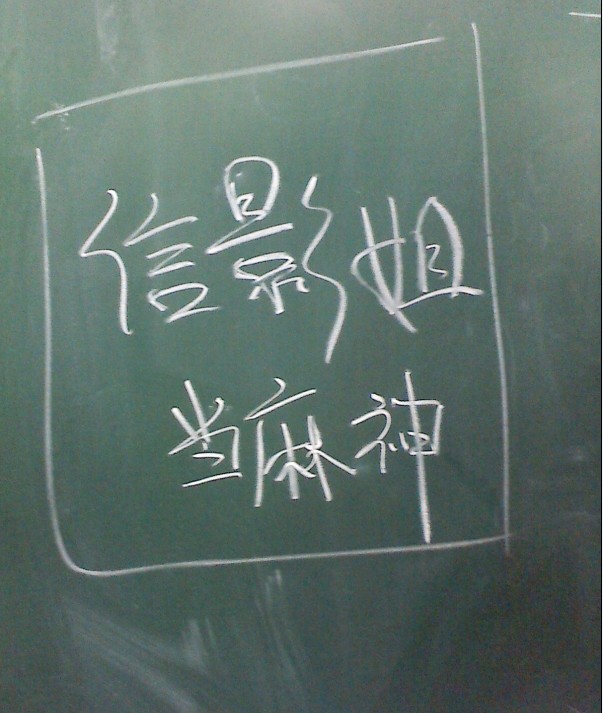 信影姐
当麻神